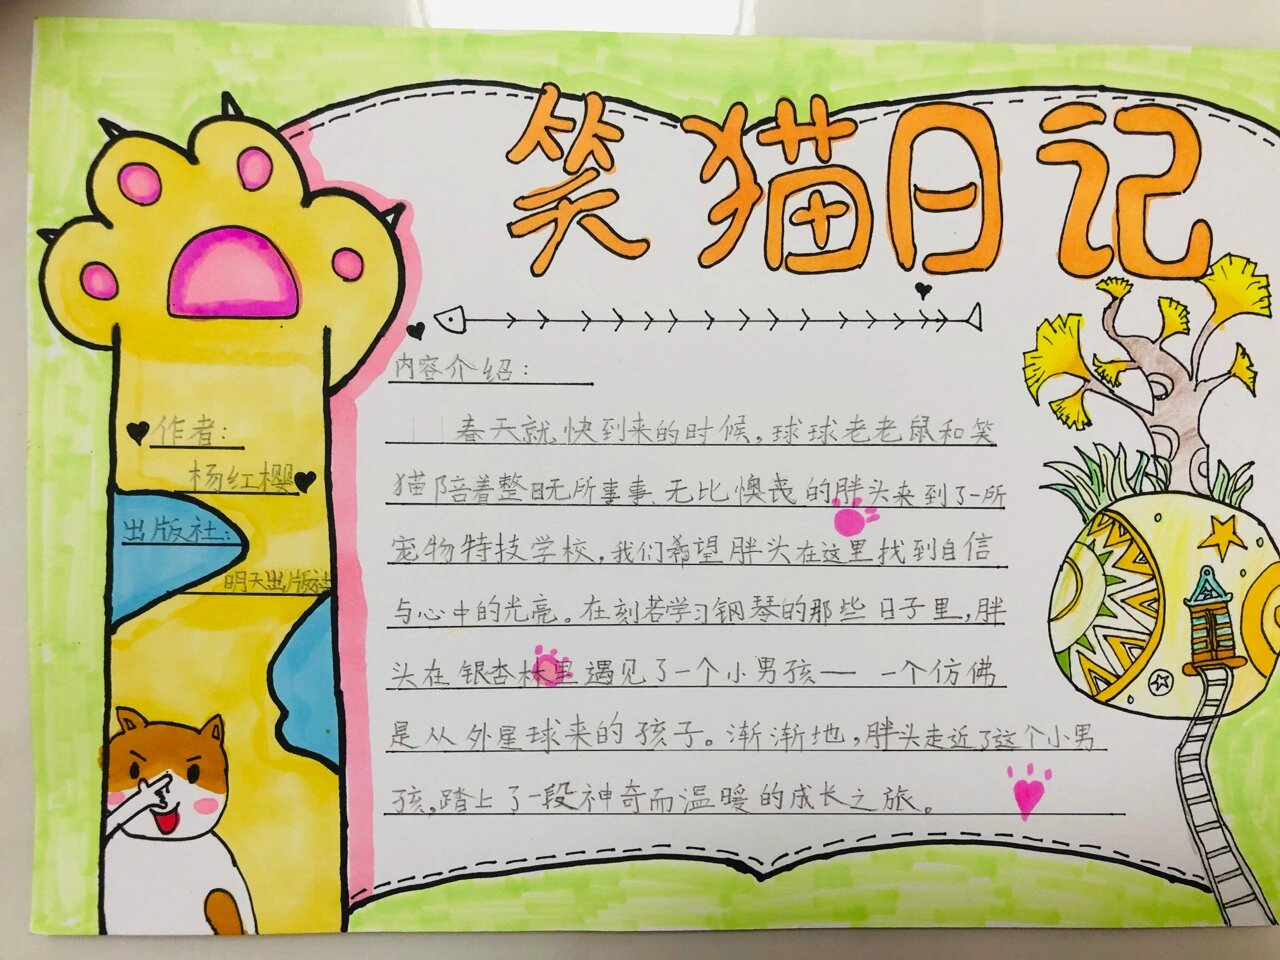 笑猫日记
作者：
杨红樱
出版社：
明天出版社
内容介绍：
春天就快到来的时候，球球老老鼠和笑
猫陪着整日无所事事、无比懊丧的胖头来到了一所
宠物特技学校，我们希望胖头在这里找到自信
与心中的光亮。在刻苦学习钢琴的那些日子里，胖
头在银杏林里遇见了一个小男孩——一个仿佛
是从外星球来的孩子。渐渐地，胖头走近了这个小男
孩，踏上了一段神奇而温暖的成长之旅。